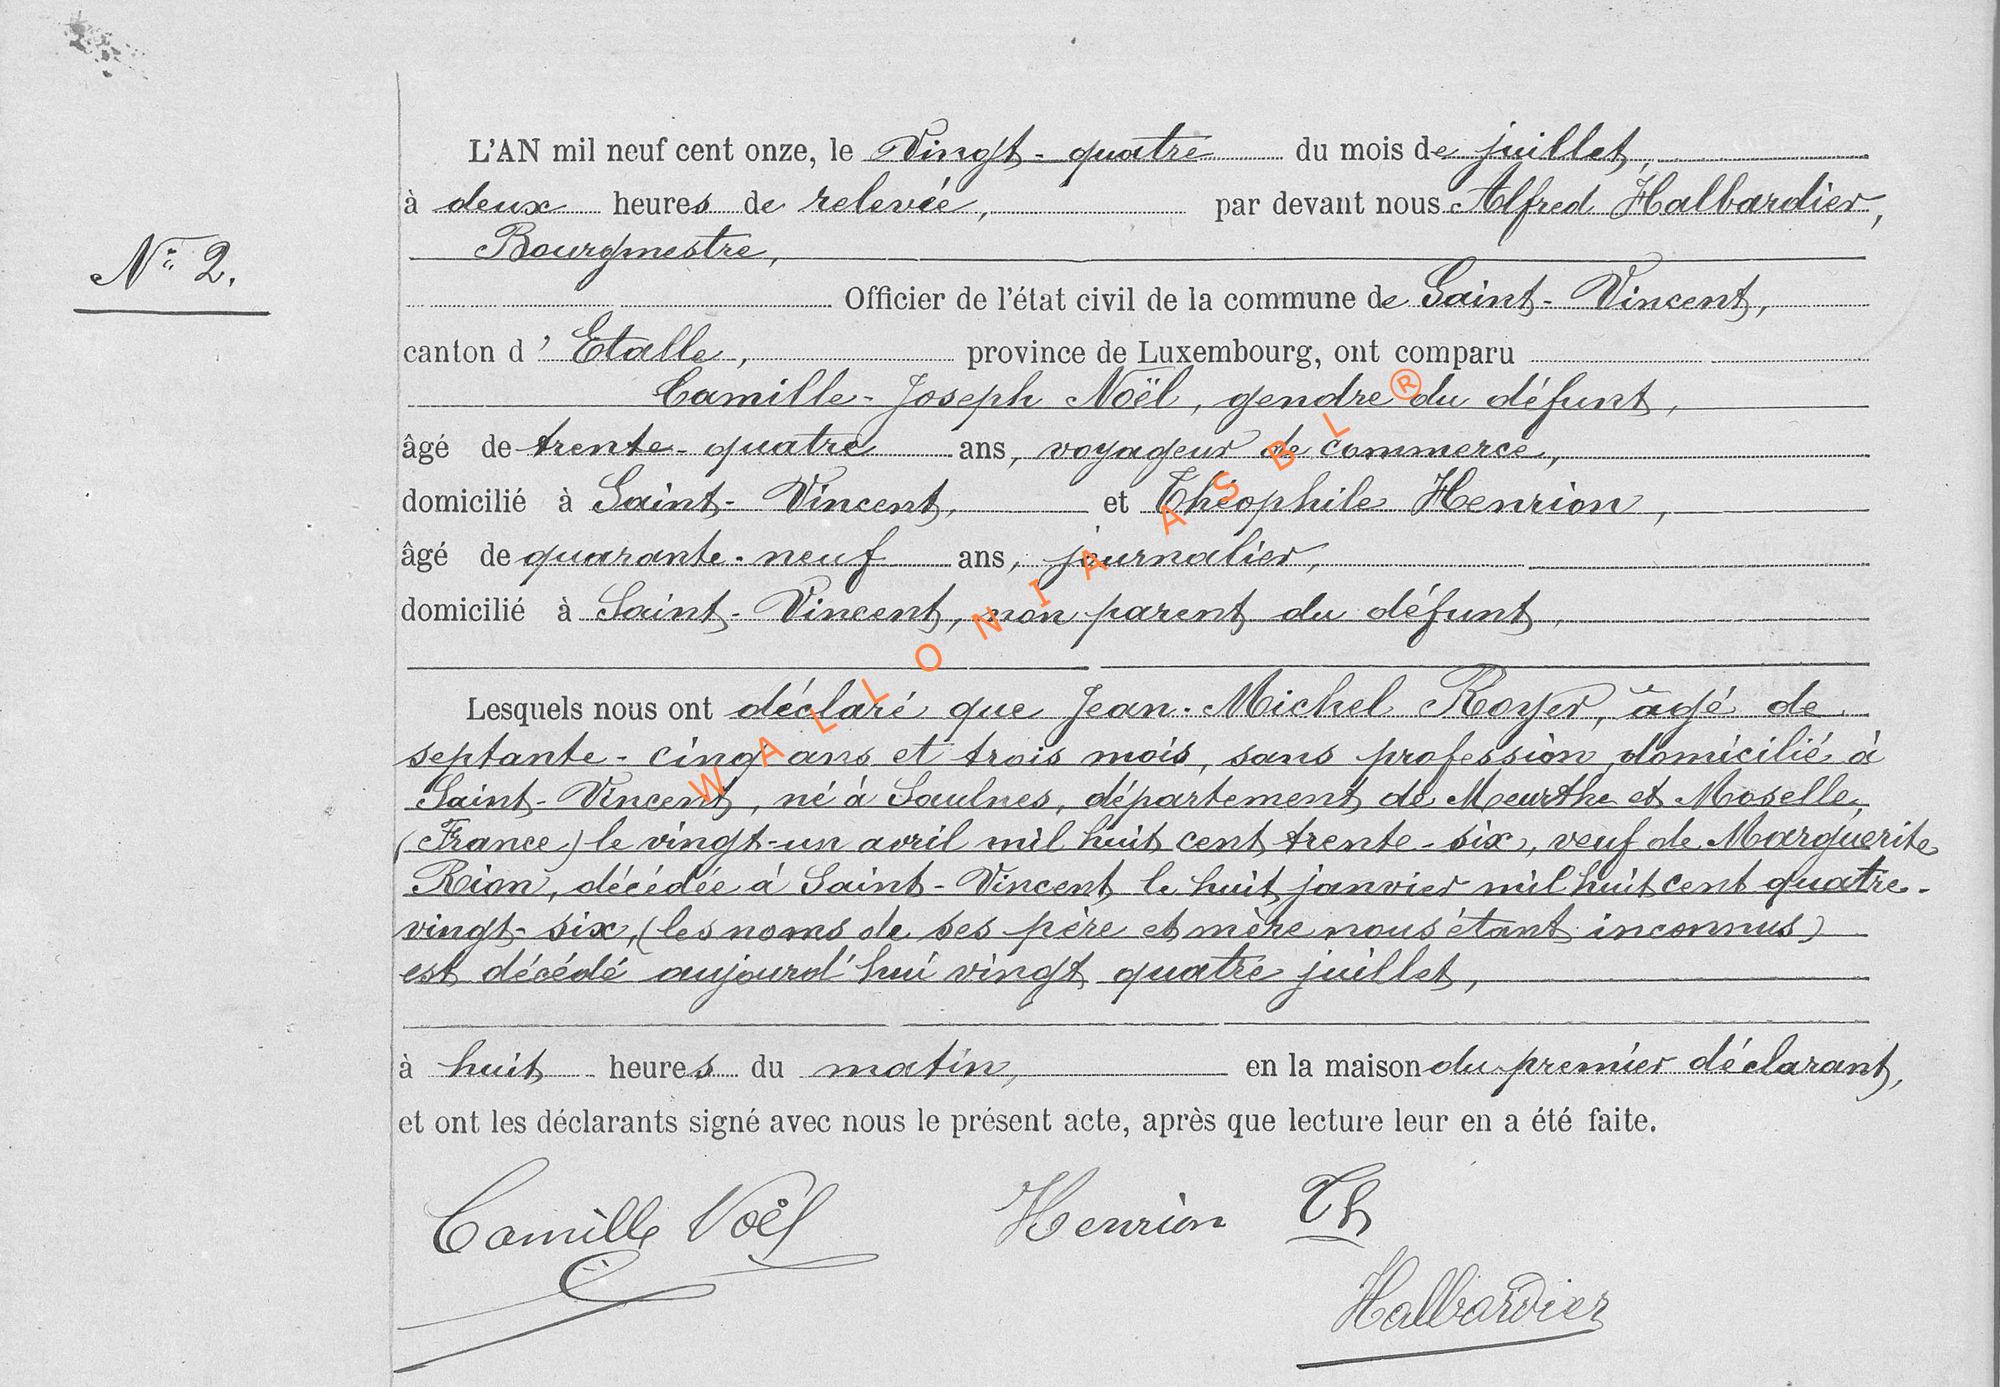 N° 2.
L'AN mil neuf cent onze, le Vingt-quatre du mois de juillet,
à deux heures de relevée, par devant nous Alfred Halbardier,
Bourgmestre,
Officier de l'état civil de la commune de Saint-Vincent,
canton d'Etalle, province de Luxembourg, ont comparu
Camille-Joseph Noël, gendre du défunt,
âgé de trente-quatre ans, voyageur de commerce,
domicilié à Saint-Vincent, et Théophile Henrion,
âgé de quarante-neuf ans, journalier,
domicilié à Saint-Vincent, non parent du défunt,
Lesquels nous ont déclaré que Jean-Michel Royer, âgé de
septante-cinq ans et trois mois, sans profession, domicilié à
Saint-Vincent, né à Saulnes, département de Meurthe et Moselle,
(France) le vingt-un avril mil huit cent trente-six, veuf de Marguerite
Rion, décédée à Saint-Vincent le huit janvier mil huit cent quatre-
vingt-six, (les noms de ses père et mère nous étant inconnus)
est décédé aujourd'hui vingt quatre juillet,
à huit heures du matin, en la maison du premier déclarant,
et ont les déclarants signé avec nous le présent acte, après que lecture leur en a été faite.
Camille Noël Henrion Th
Halbardier
WALLONIA ASBL ®